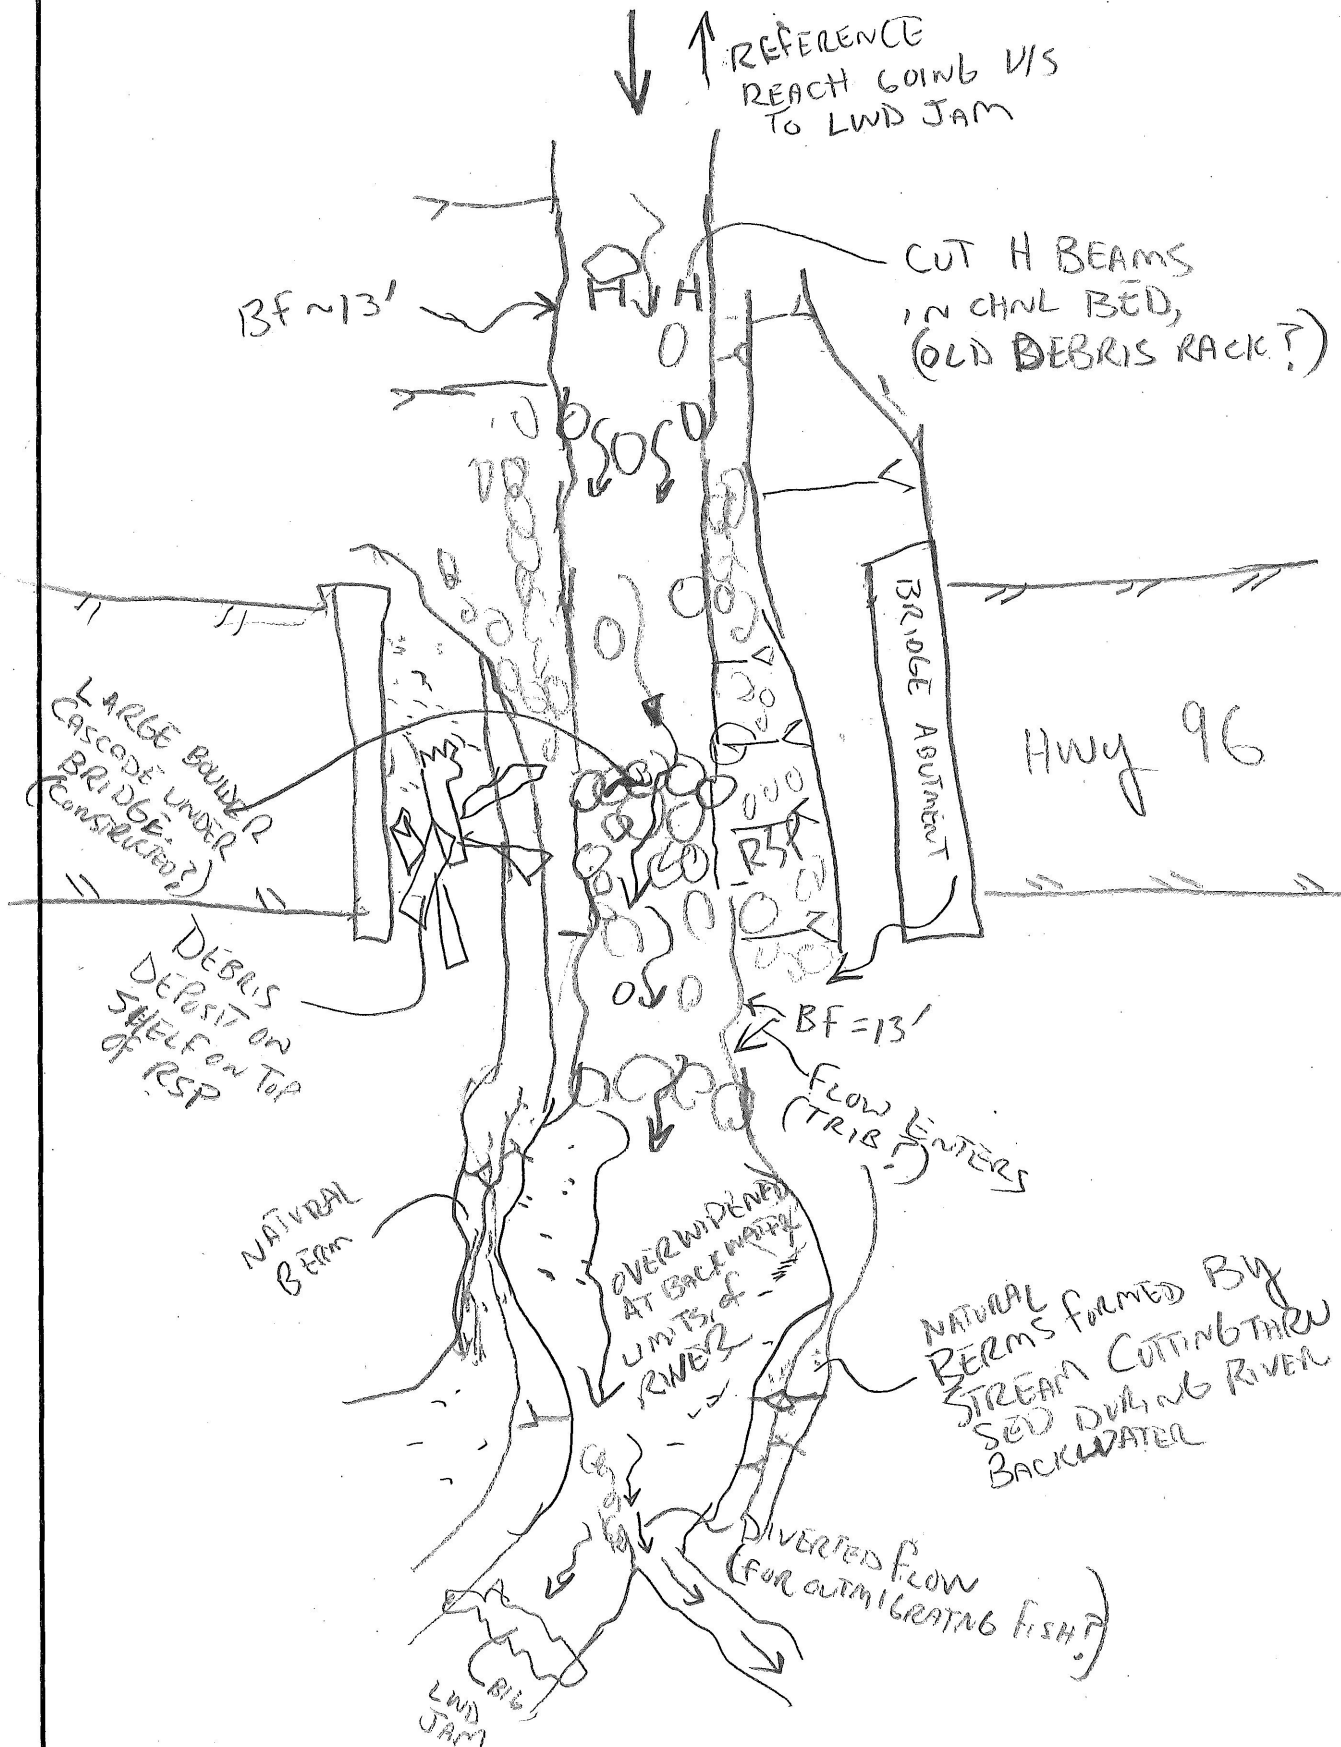 REFERENCE
REACH GOING U/S
TO LWD JAM
CUT H BEAMS
IN CHNL BED,
(OLD DEBRIS RACK?)
BF ~13'
H H
BRIDGE ABUTMENT
HWY 96
LARGE BOULDER
CASCADE UNDER
BRIDGE.
(CONSTRUCTED?)
RSP
DEBRIS
DEPOSIT ON
SHELF ON TOP
OF RSP
BF = 13'
FLOW ENTERS
(TRIB?)
NATURAL
BERM
OVERWIDENED
AT BACKWATER
LIMITS of
RIVER
NATURAL
BERMS FORMED BY
STREAM CUTTING THRU
SED DURING RIVER
BACKWATER
DIVERTED FLOW
(FOR OUTMIGRATNG FISH?)
BIG
LWD
JAM